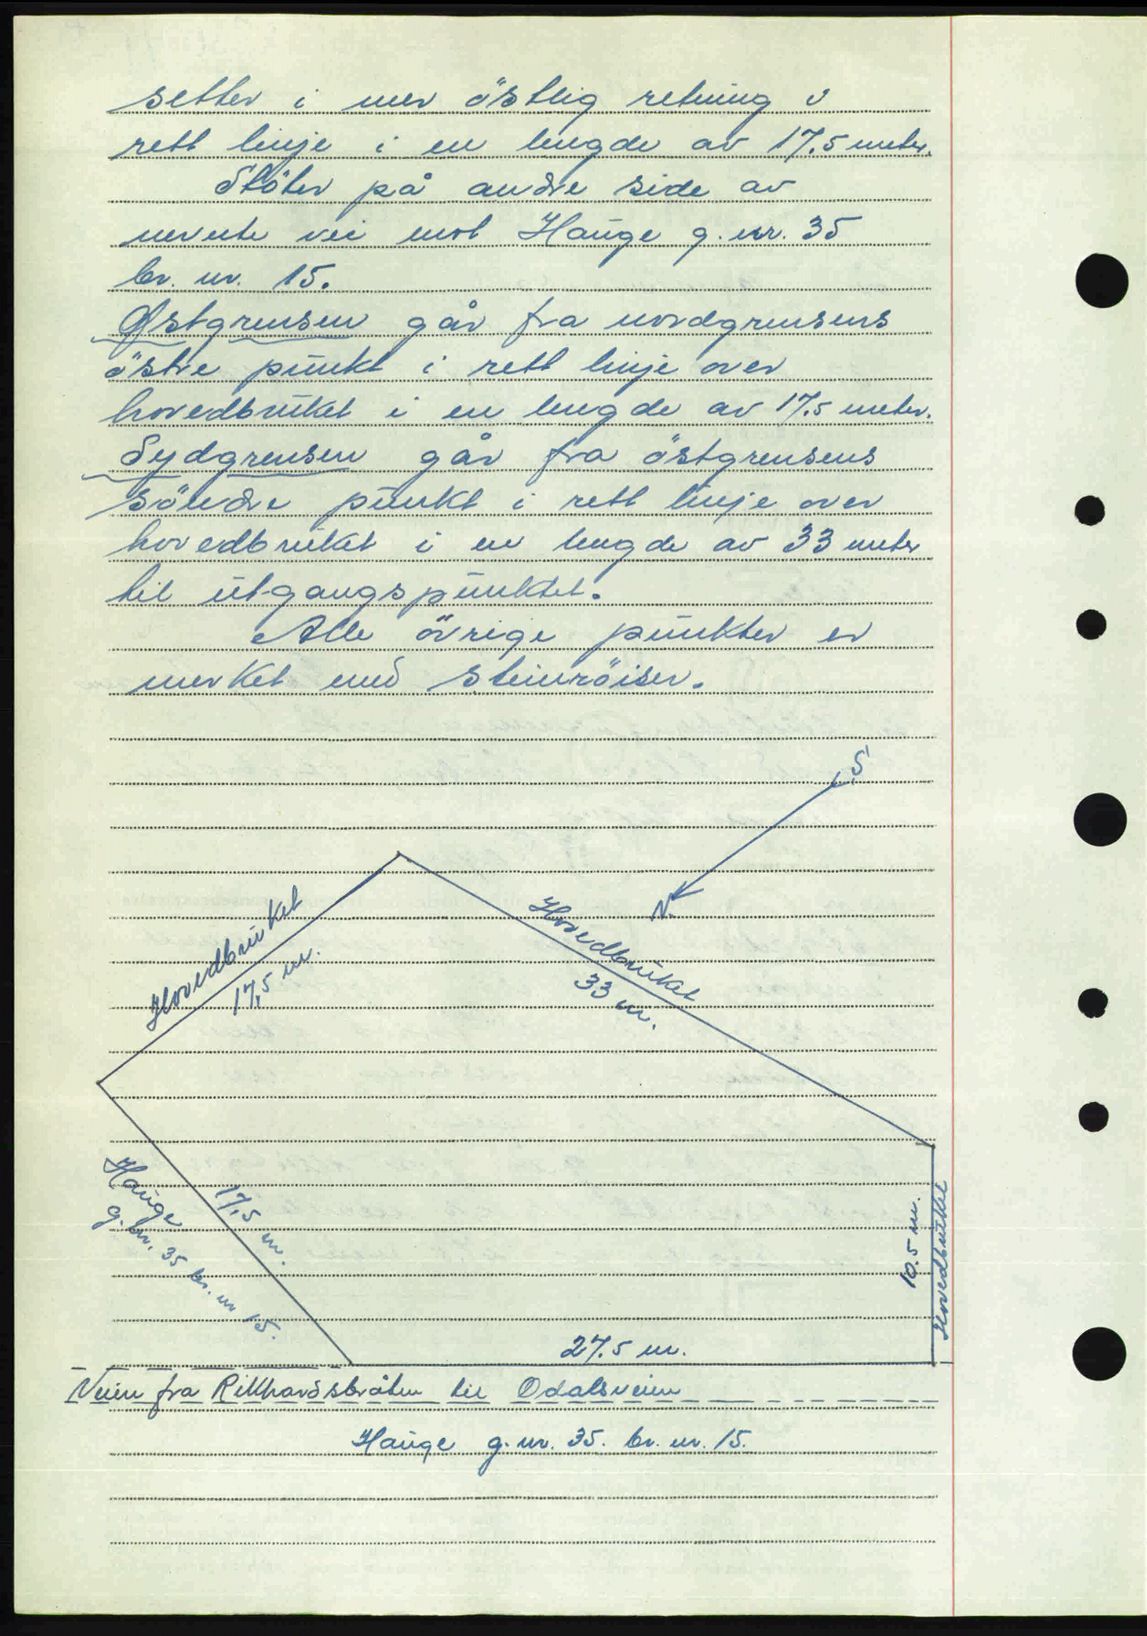 setter i mer östlig retning i
rett linje i en lengde av 17.5 meter.
Stöter på andre side av
nevnte vei mot Hauge g. nr. 35
br. nr. 15.
Østgrensen går fra nordgrensens
östre punkt i rett linje over
hovedbruket i en lengde av 17.5 meter.
Sydgrensen går fra östgrensens
söndre punkt i rett linje over
hovedbruket i en lengde av 33 meter
til utgangspunktet.
Alle övrige punkter er
merket med steinröiser.
S
N.
Hovedbruket
17,5 m.
Hovedbruket
33 m.
Hauge
g. nr. 35 br. nr 15.
17,5 m.
10.5 m.
Hovedbruket
27.5 m.
Veien fra Rikhardsbråten til Odalsveien
Hauge g. nr. 35. br. nr. 15.